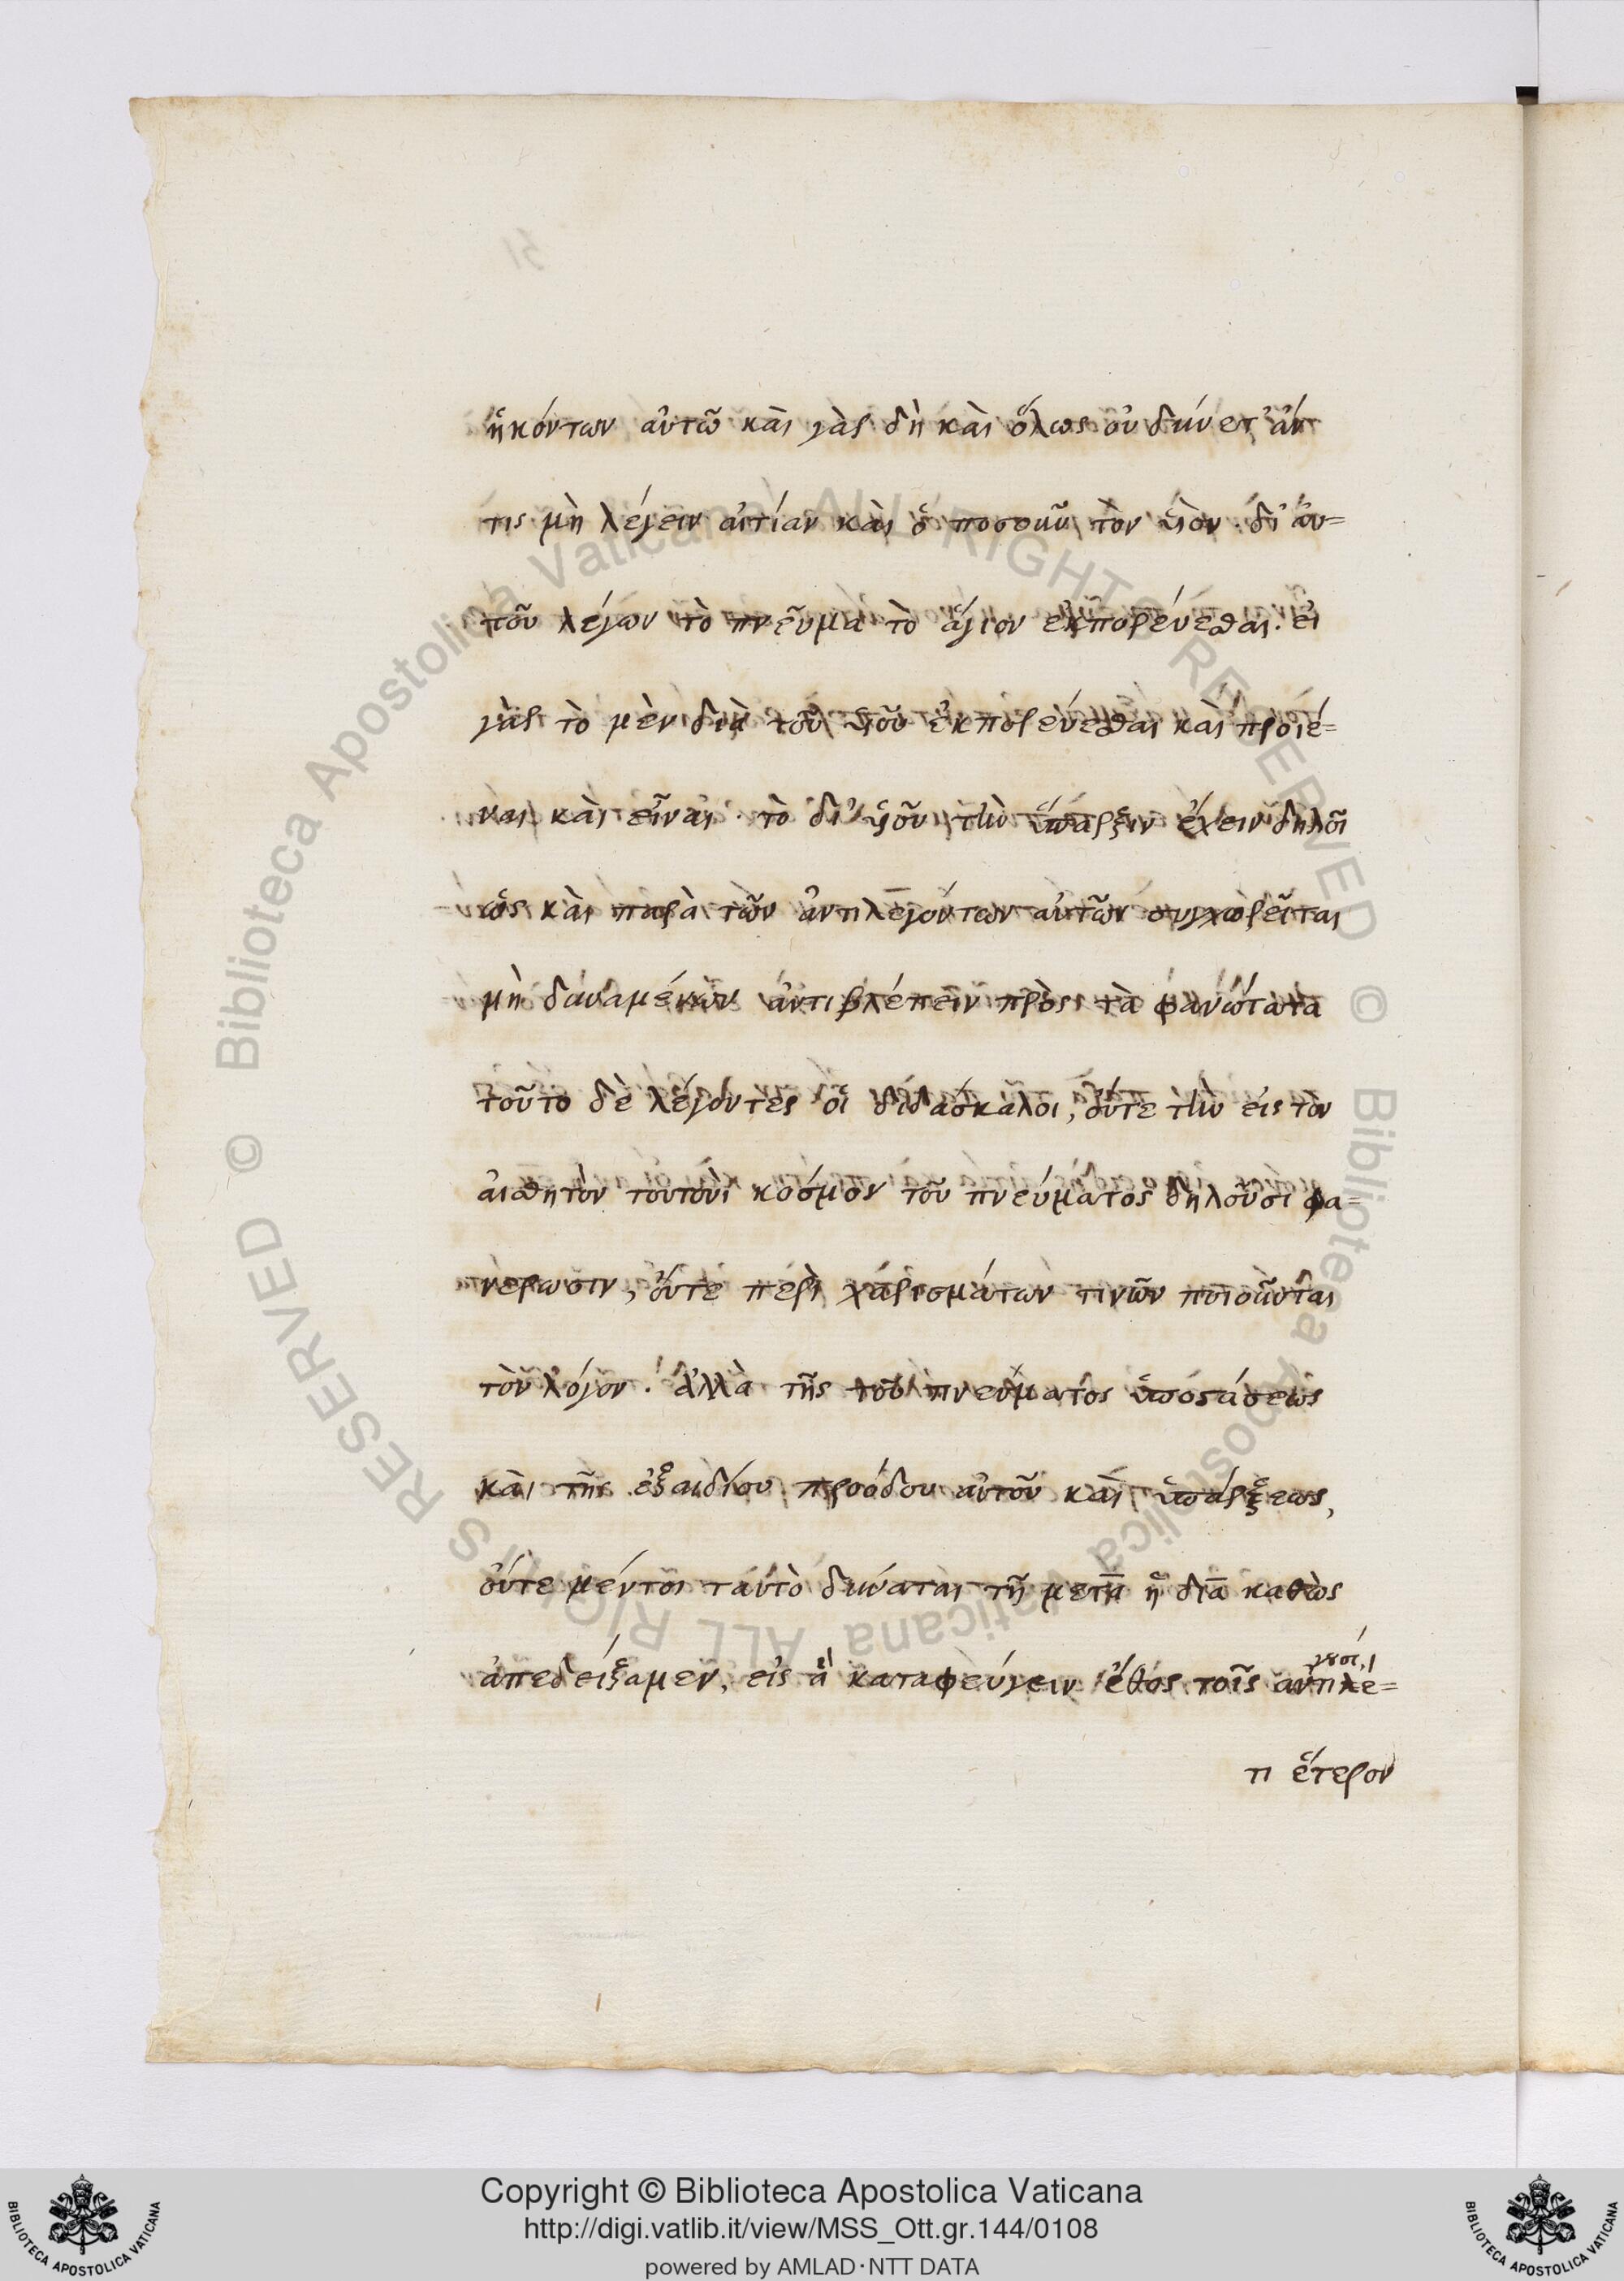 ἡκόντων αὐτῶ καὶ γὰρ δὴ καὶ ὅλως οὐ δύνετ' ἀν
τις μὴ λέγειν αἰτίαν καὶ ὁποσοῦν τὸν υἱὸν· δι' αὐ=
τοῦ λέγων τὸ πνεῦμα τὸ ἅγιον ἐκπορεύεσθαι· εἰ
γὰρ τὸ μὲν διὰ τοῦ υἱοῦ ἐκπορεύεσθαι καὶ προιέ=
ναι καὶ εἶναι· τὸ δι' υἱοῦ τὴν ὕπαρξιν ἔχειν δηλοῖ
ὡς καὶ παρὰ τῶν ἀντιλεγόντων αὐτῶν συγχωρεῖται
μὴ δυναμένων ἀντιβλέπειν πρὸς τὰ φανώτατα
τοῦτο δὲ λέγοντες οἱ διδάσκαλοι, οὔτε τὴν εἰς τὸν
αἰσθητὸν τουτονὶ κόσμον τοῦ πνεύματος δηλοῦσι φα=
νερωσιν, οὔτε περὶ χαρισμάτων τινῶν ποιοῦνται
τὸν λόγον· ἀλλὰ τῆς τοῦ πνεύματος ὑποστάσεως
καὶ τῆς ἐξ αιδίου προόδου αὐτοῦ καὶ ὑπάρξεως,
οὔτε μέντοι ταυτὸ δύναται τῆ μετὰ ἡ διὰ καθὼς
ἀπεδείξαμεν, εἰς ἃ καταφεύγειν ἔθος τοῖς ἀντιλέ=
γουσι,
τι ἕτερον
© Biblioteca Apostolica Vaticana ALL RIGHTS RESERVED © Biblioteca Apostolica Vaticana ALL RIGHTS RESERVED
Copyright © Biblioteca Apostolica Vaticana
http://digi.vatlib.it/view/MSS_Ott.gr.144/0108
powered by AMLAD·NTT DATA
BIBLIOTECA APOSTOLICA VATICANA
BIBLIOTECA APOSTOLICA VATICANA